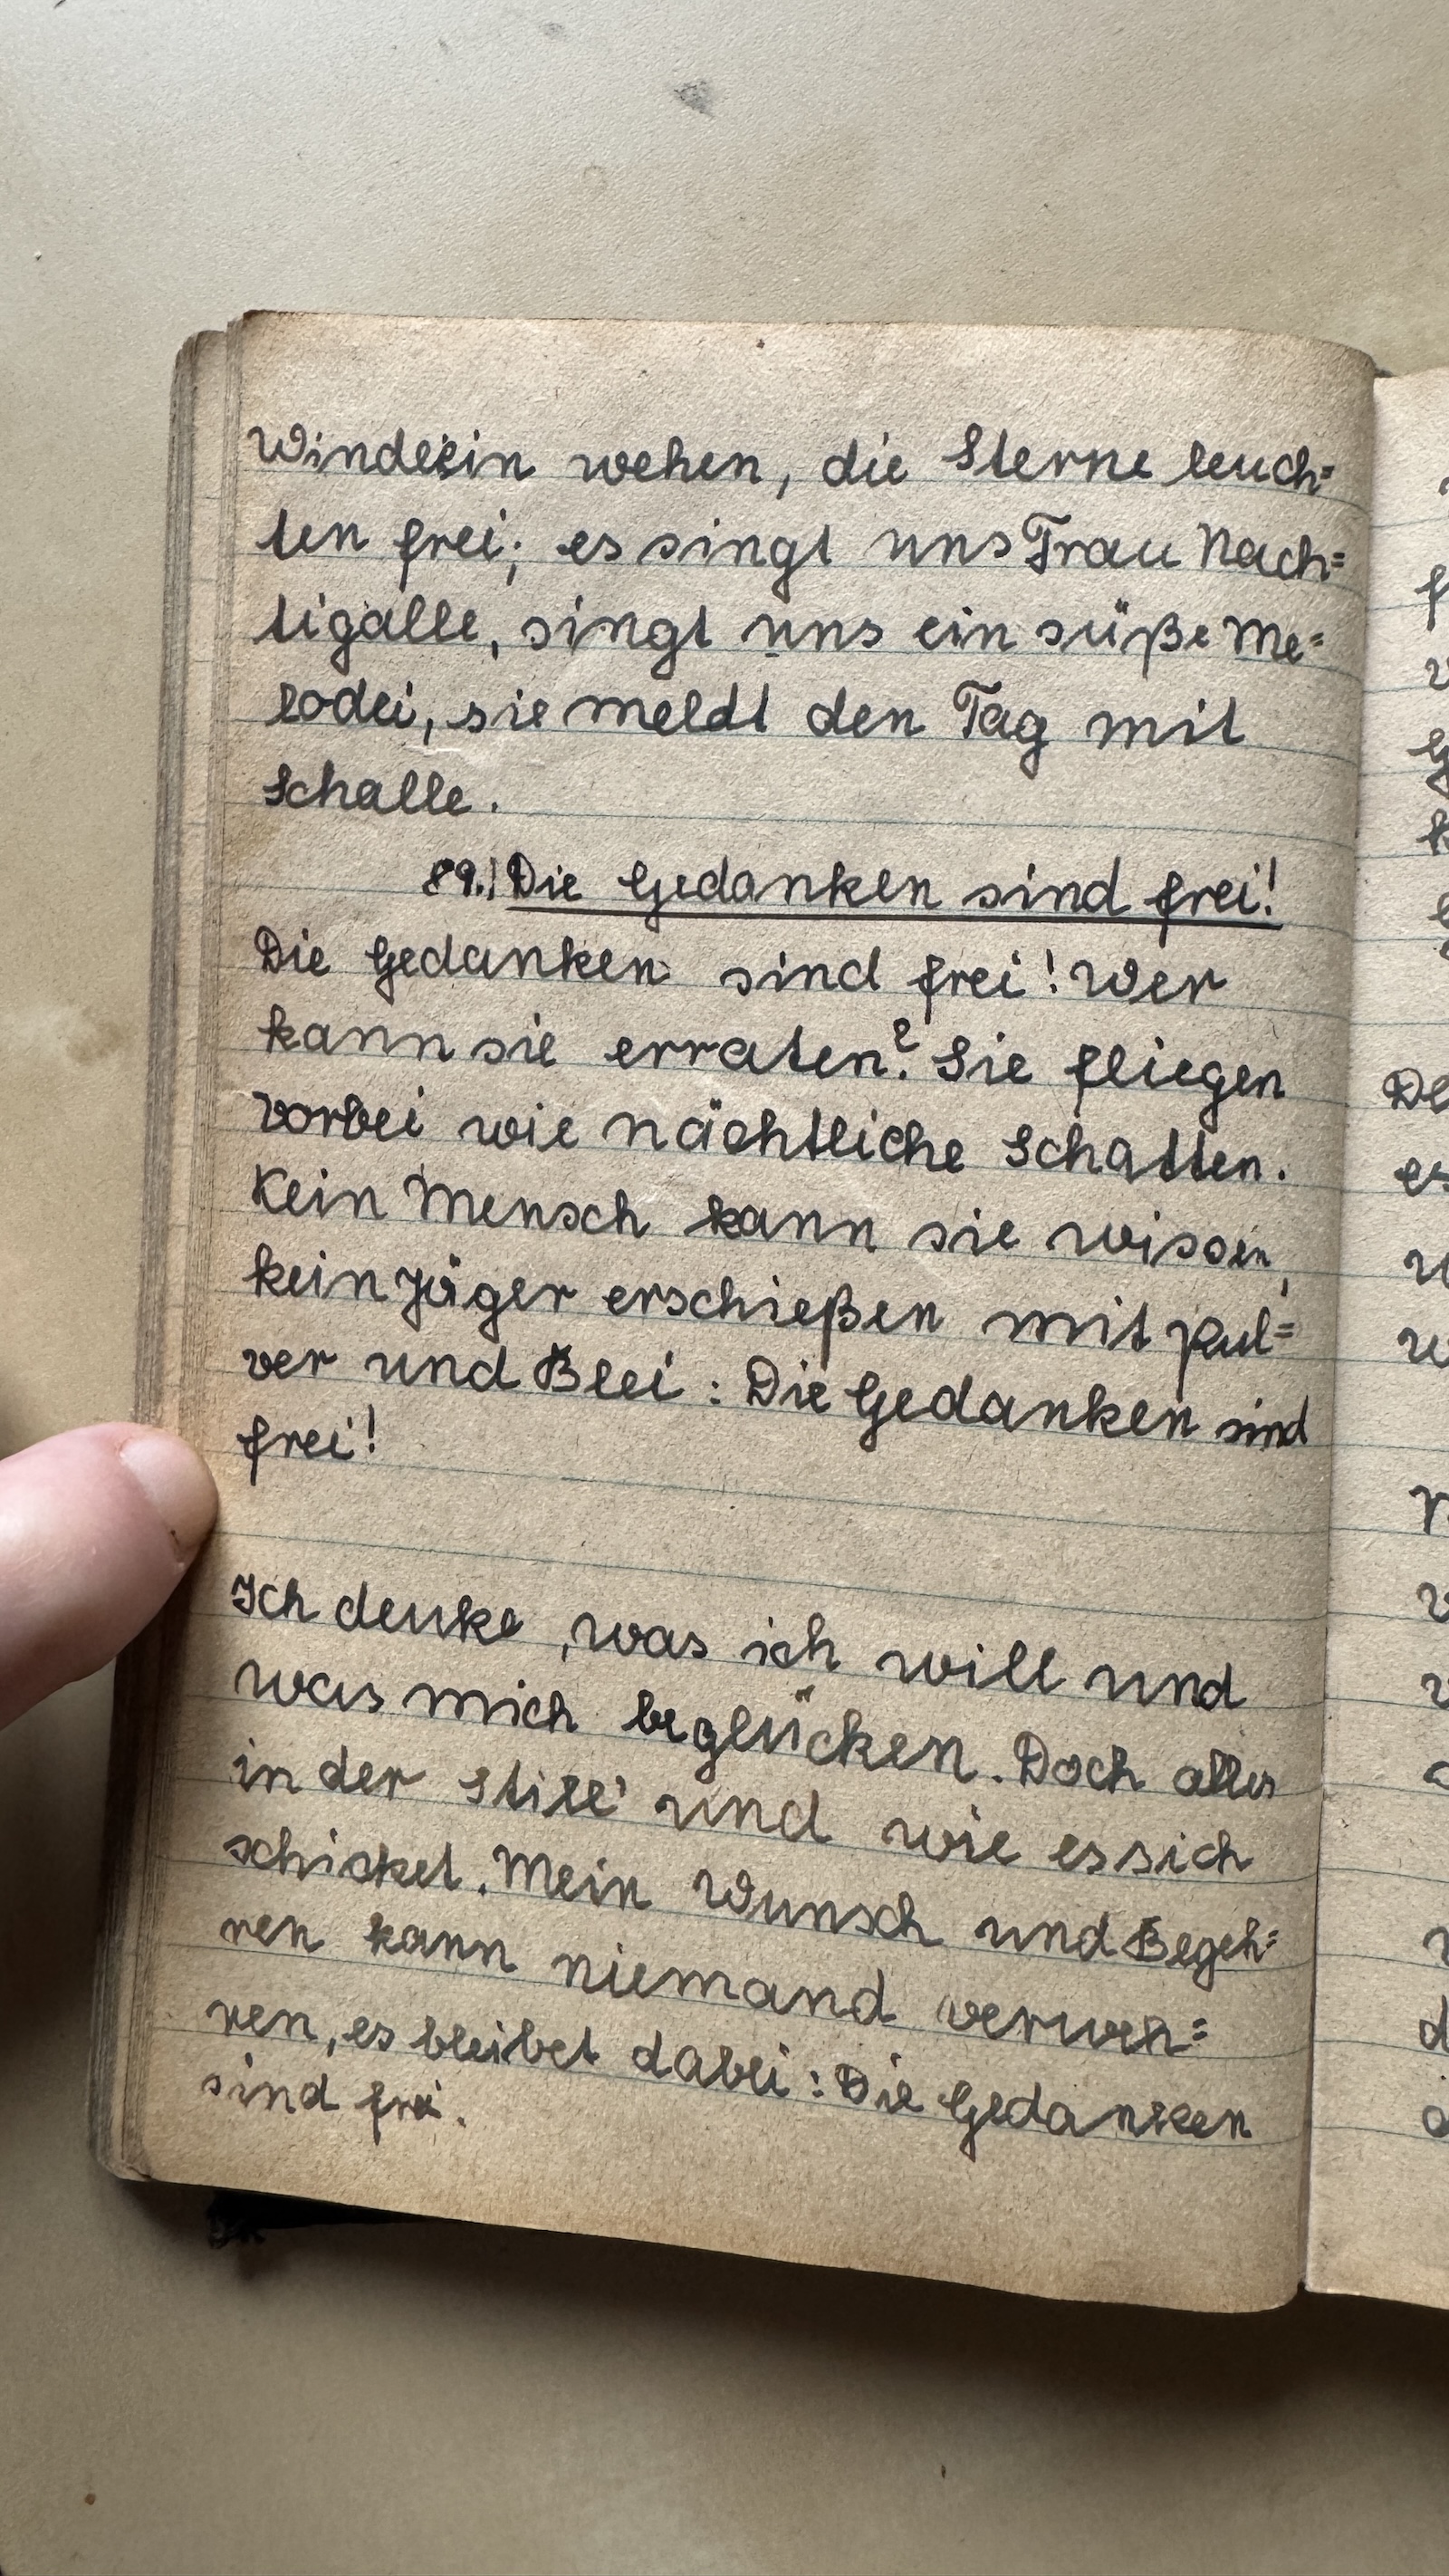 Windesin wehen, die Sterne leuch=
ten frei; es singt uns Frau Nach=
tigalle, singt uns ein süße Me=
lodei, sie meldt den Tag mit
Schalle.
89.) Die Gedanken sind frei!
Die Gedanken sind frei! Wer
kann sie erraten? Sie fliegen
vorbei wie nächtliche Schatten.
Kein Mensch kann sie wissen,
kein Jäger erschießen mit Pul=
ver und Blei: Die Gedanken sind
frei!
Ich denke, was ich will und
was mich beglücken. Doch alles
in der Still' und wie es sich
schicket. Mein Wunsch und Begeh=
ren kann niemand verweh=
ren, es bleibet dabei: Die Gedanken
sind frei.